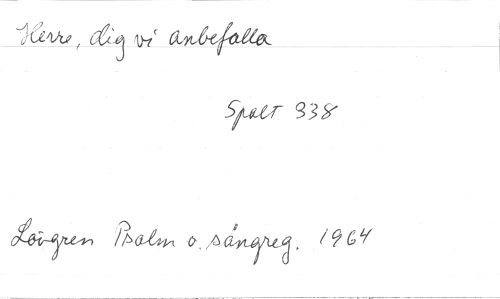 Herre, dig vi anbefalla
Spalt 338
Lövgren Psalm o. sångreg. 1964